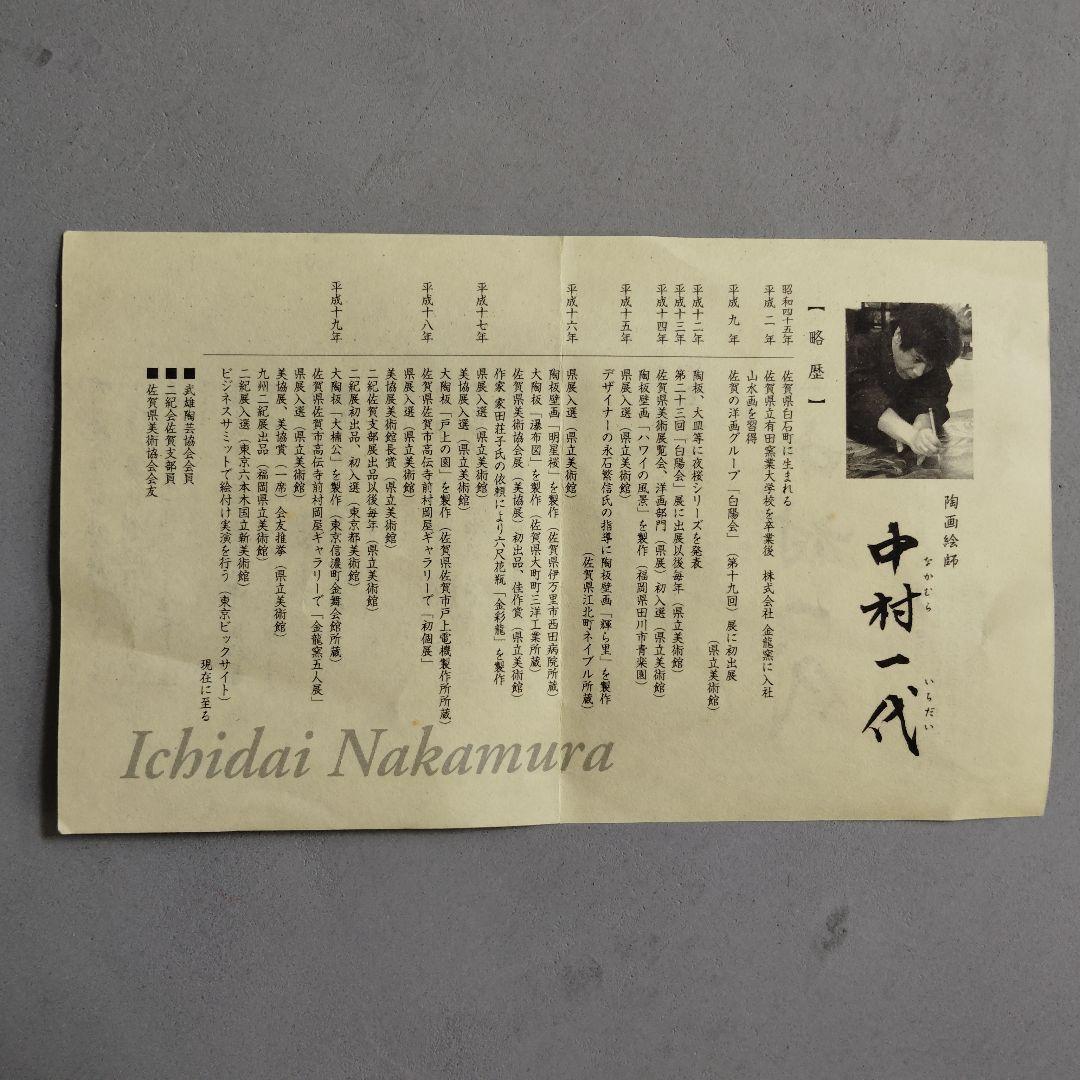 陶画絵師
中村一代
なかむら
いちだい
【略歴】
昭和四十五年 佐賀県白石町に生まれる
平成二年 佐賀県立有田窯業大学校を卒業後 株式会社 金龍窯に入社
山水画を習得
平成九年 佐賀の洋画グループ「白陽会」(第十九回)展に初出展
(県立美術館)
平成十二年 陶板、大皿等に夜桜シリーズを発表
平成十三年 第二十三回「白陽会」展に出展以後毎年(県立美術館)
平成十四年 佐賀県美術展覧会、洋画部門(県展)初入選(県立美術館)
陶板壁画「ハワイの風景」を製作(福岡県田川市青楽園)
平成十五年 県展入選(県立美術館)
デザイナーの永石繁信氏の指導に陶板壁画「輝ら里」を製作
(佐賀県江北町ネイブル所蔵)
平成十六年 県展入選(県立美術館)
陶板壁画「明星桜」を製作(佐賀県伊万里市西田病院所蔵)
大陶板「瀑布図」を製作(佐賀県大町町三洋工業所蔵)
佐賀県美術協会展(美協展)初出品、佳作賞(県立美術館)
作家 家田荘子氏の依頼により六尺花瓶「金彩龍」を製作
平成十七年 県展入選(県立美術館)
美協展入選(県立美術館)
大陶板「戸上の園」を製作(佐賀県佐賀市戸上電機製作所所蔵)
平成十八年 佐賀県佐賀市高伝寺前村岡屋ギャラリーで「初個展」
県展入選(県立美術館)
美協展美術館長賞(県立美術館)
二紀佐賀支部展出品以後毎年(県立美術館)
二紀展初出品、初入選(東京都美術館)
平成十九年 大陶板「大楠公」を製作(東京信濃町金舞会館所蔵)
佐賀県佐賀市高伝寺前村岡屋ギャラリーで「金龍窯五人展」
県展入選(県立美術館)
美協展、美協賞(一席)会友推挙(県立美術館)
九州二紀展出品(福岡県立美術館)
二紀展入選(東京六本木国立新美術館)
ビジネスサミットで絵付け実演を行う(東京ビックサイト)
現在に至る
■武雄陶芸協会会員
■二紀会佐賀支部員
■佐賀県美術協会会友
Ichidai Nakamura